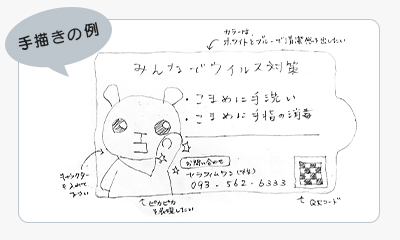 手描きの例
カラーは、
ホワイトとブルーで清潔感を出したい
みんなでウイルス対策
・こまめに手洗い
・こまめに手指の消毒
キャラクター
を入れて
下さい
お問い合わせ
093-562-6333
ピカピカ
を表現したい
QRコード